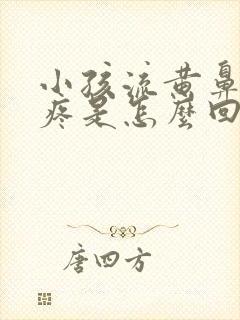 小孩流黄鼻
疼是怎麼回
唐四方